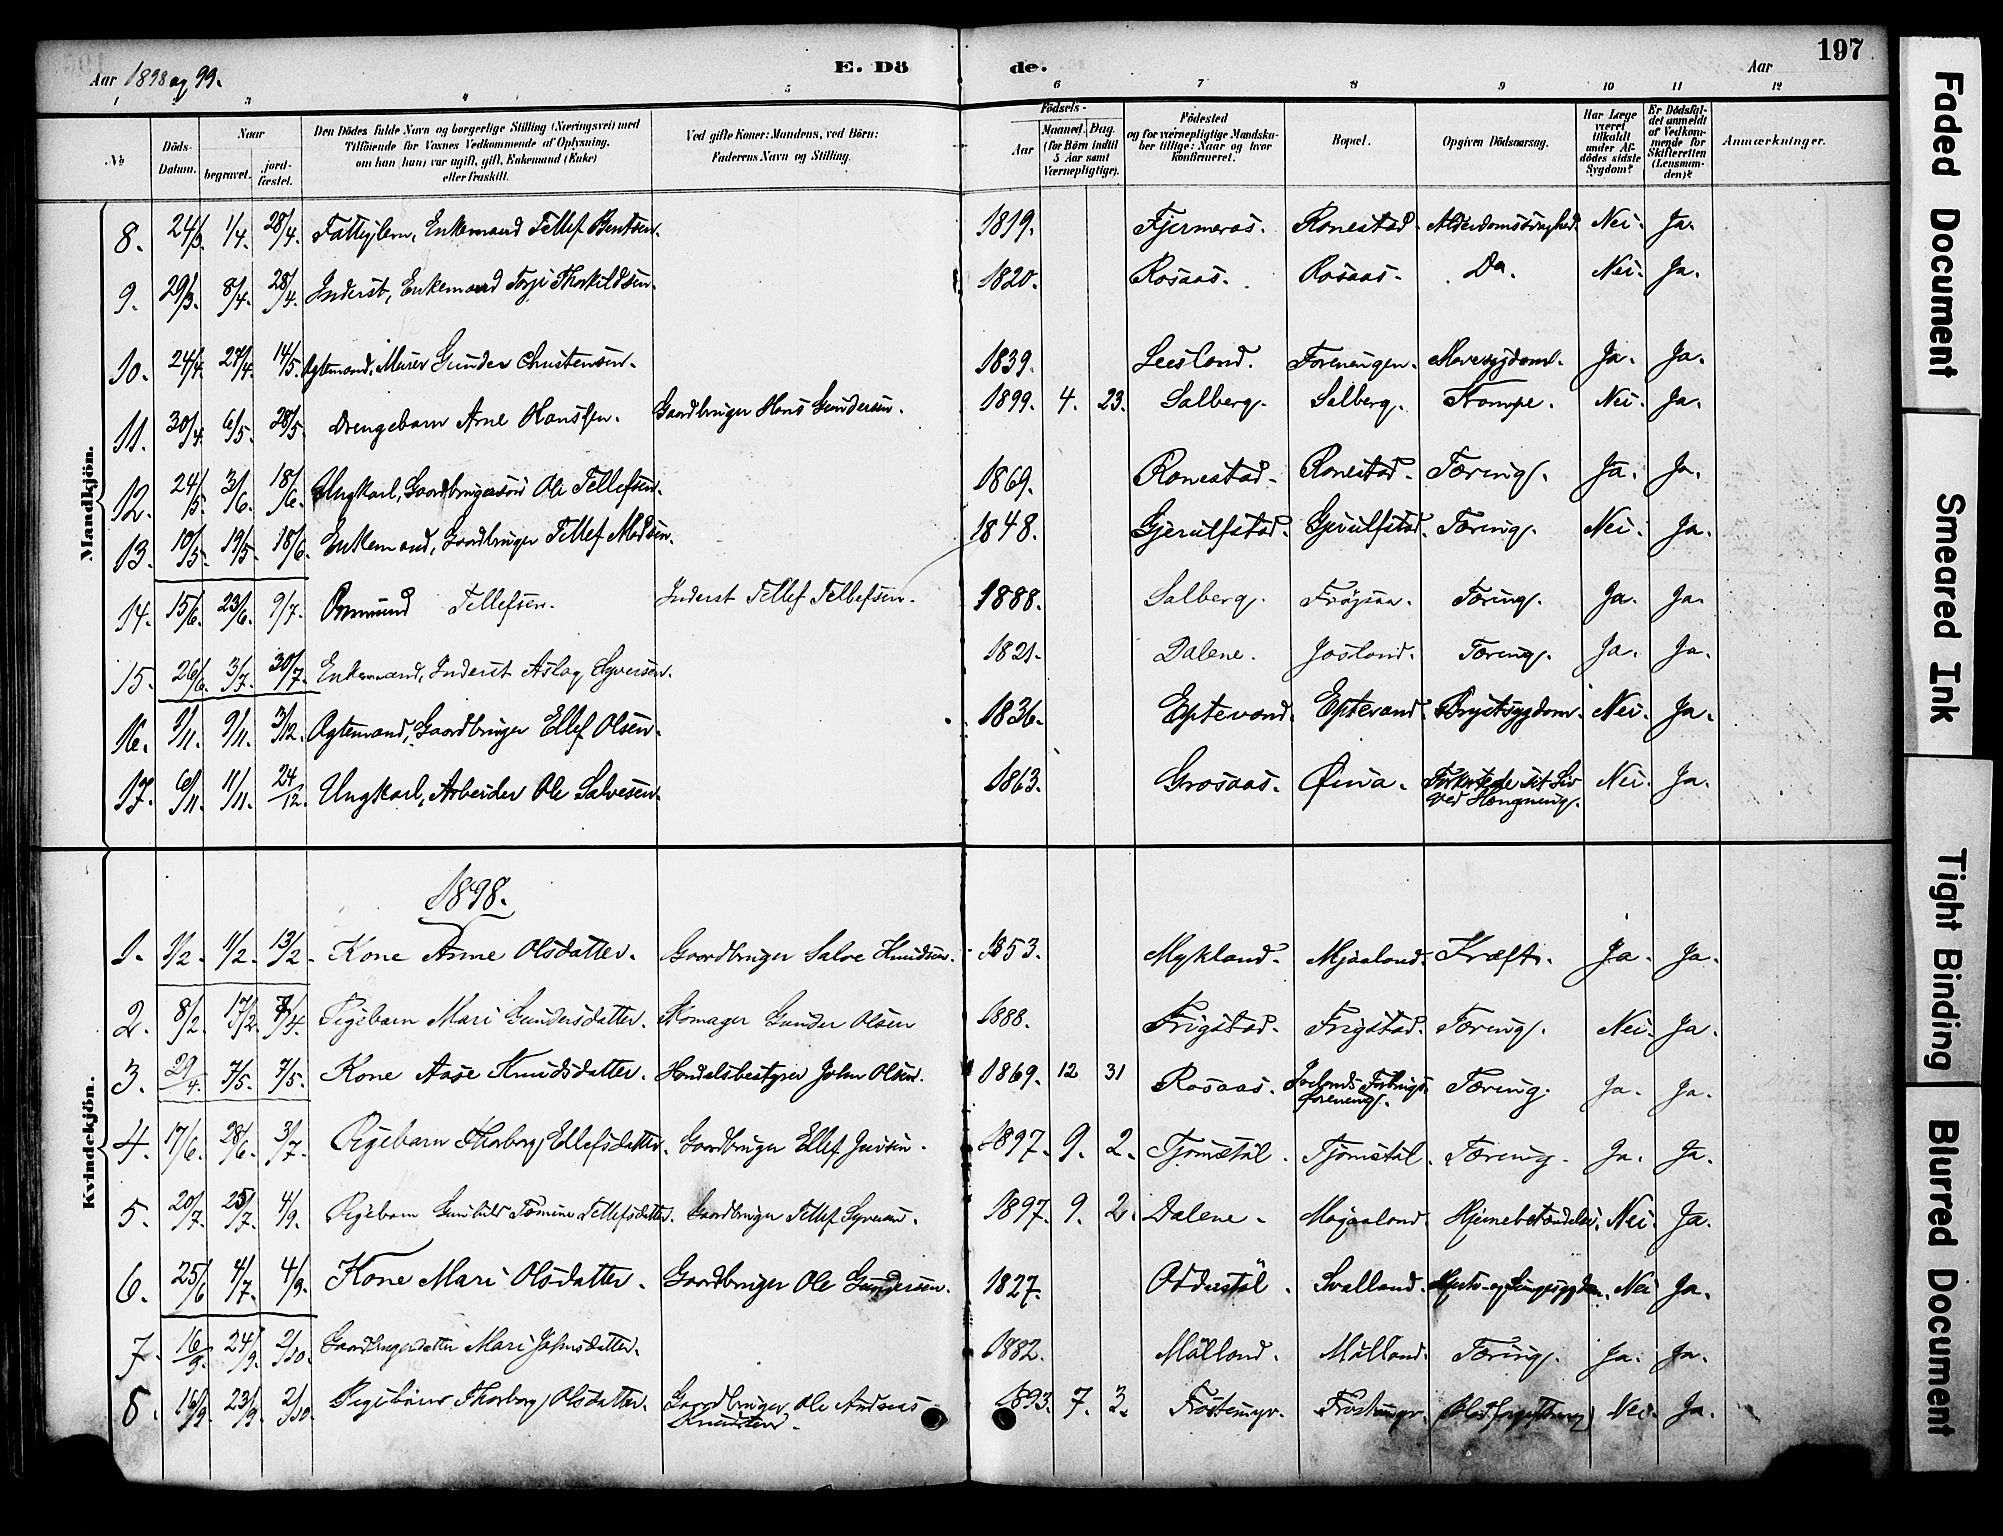 Aar 1898 og 99.
E. Dö
de.
Aar
197
1 2 3 4 5 6 7 8 9 10 11 12
No
Döds-Datum.
Naar
begravet.
jordfæstet.
Den Dödes fulde Navn og borgerlige Stilling (Næringsvei) med
Tilföiende for Voxnes Vedkommende af Oplysning,
om han (hun) var ugift, gift, Enkemand (Enke)
eller fraskilt.
Ved gifte Koner: Mandens, ved Börn:
Faderens Navn og Stilling.
Födsels-
Aar
Maaned. Dag.
(for Börn indtil
5 Aar samt
Værnepligtige).
Födested
og for værnepligtige Mandskaber tillige: Naar og hvor
konfirmeret.
Bopæl.
Opgiven Dödsaarsag.
Har Læge
været
tilkaldt
under Afdödes sidste
Sygdom?
Er Dödsfaldet anmeldt
af Vedkommende for
Skifteretten
(Lensmanden)?
Anmærkninger.
Mandkjön.
8. 24/3. 1/4. 28/4. Enkemand Tellef Bentsen. 1819. Fjermeros. Ronestad. Alderdomssvaghed. Nei. Ja.
9. 29/3. 8/4. 28/4. Inderst, Enkemand Torje Thorkildsen. 1820. Rosaas. Rosaas. Do. Nei. Ja.
10. 24/4. 27/4. 14/5. Ægtemand, Murer Gunder Christensen. 1839. Leesland. Foreningen. Mavesygdom. Ja. Ja.
11. 30/4. 6/5. 28/5. Drengebarn Arne Hanssen. Gaardbruger Hans Gundersen. 1899. 4. 23. Salberg. Salberg. Krampe. Nei. Ja.
12. 24/5. 3/6. 18/6. Ungkarl, Gaardbrugersøn Ole Tellefsen. 1869. Ronestad. Ronestad. Tæring. Ja. Ja.
13. 10/5. 19/5. 18/6. Enkemand, Gaardbruger Tellef Madsen. 1848. Gjerulfstad. Gjerulfstad. Tæring. Nei. Ja.
14. 15/6. 23/6. 9/7. Osmund Tellefsen. Inderst Tellef Tellefsen. 1888. Salberg. Frøysaa. Tæring. Ja. Ja.
15. 26/6. 3/7. 30/7. Enkemand, Inderst Aslag Syversen. 1821. Dalene. Josland. Tæring. Ja. Ja.
16. 1/11. 9/11. 3/12. Ægtemand, Gaardbruger Ellef Olsen. 1836. Eptevand. Eptevand. Brystsygdom. Nei. Ja.
17. 6/11. 11/11. 24/12. Ungkarl, Arbeider Ole Salvesen. 1863. Grosaas. Øina. Forkortede sit Liv
ved Hængning. Nei. Ja.
Kvindekjön.
1898.
1. 1/2. 11/2. 13/2. Kone Anne Olsdatter. Gaardbruger Salve Knudsen. 1853. Mykland. Mjaaland. Kræft. Ja. Ja.
2. 8/2. 17/2. Pigebarn Mari Gundersdatter. Skomager Gunder Olsen 1888. Frigstad. Frigstad. Tæring. Nei. Ja.
3. 29/4. 7/5. 7/5. Kone Aase Knudsdatter. Handelsbestyrer John Olsen. 1869. 12 31 Rosaas. Ivelands Forbrugsforening. Tæring. Ja. Ja.
4. 17/6. 28/6. 3/7. Pigebarn Thorborg Ellefsdatter. Gaardbruger Ellef Jensen. 1897. 9. 2. Tjomstøl. Tjomstøl. Tæring. Ja. Ja.
5. 20/7. 25/7. 4/9. Pigebarn Gunhild Tomine Tellefsdatter. Gaardbruger Tellef Syversen. 1897. 9. 2. Dalene. Mogaaland. Hjernebetændelse. Nei. Ja.
6. 25/6 4/7. 4/9. Kone Mari Olsdatter. Gaardbruger Ole Gundersen. 1827. Oddestøl Svalland. Hjerte- og Lungesygdom. Nei Ja.
7. 16/9. 24/9. 2/10. Gaardbrugerdatter Mari Johnsdatter. 1882. Mølland. Mølland. Tæring. Ja. Ja.
8. 16/9. 23/9. 2/10. Pigebarn Thorborg Olsdatter. Gaardbruger Ole Andreas
Knudsen. 1893. 7. 3. Frøstemyr. Frøstemyr. Blodforgiftning Nei. Ja.
Faded Document
Smeared Ink
Tight Binding
Blurred Document